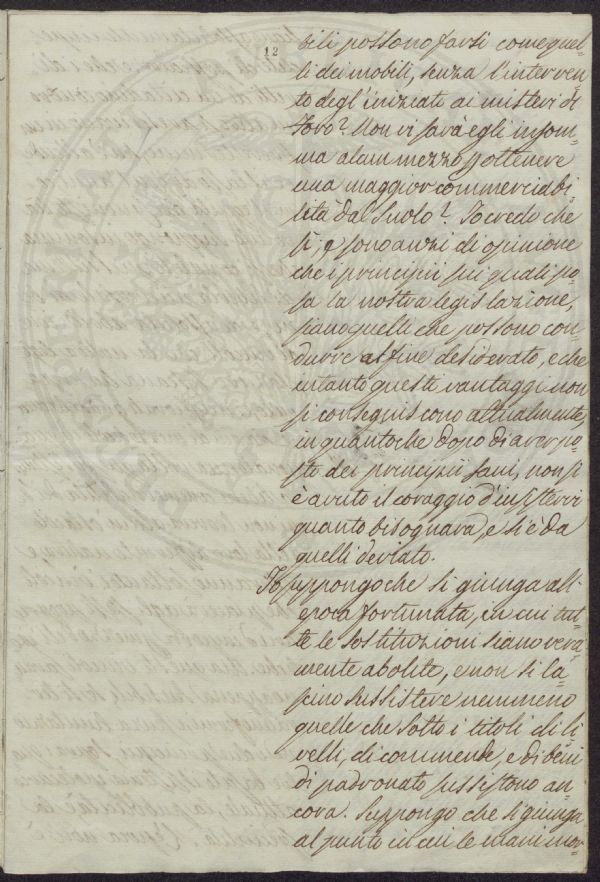 12
bili possono farsi come quel=
li dei mobili, senza l'interven=
to degl'iniziati ai misteri di
foro? Non vi sarà egli insom=
ma alcun mezzo p ottenere
una maggior commerciabi=
lità dal suolo? Io credo che
sì, e sono anzi di opinione
che i principii sui quali po=
sa la nostra legislazione,
siano quelli che possono con=
durre al fine desiderato, e che
intanto questi vantaggi non
si conseguiscono attualmente,
in quanto che dopo di aver po=
sto dei principii sani, non si
è avuto il coraggio d'insistervi
quanto bisognava, e si è da
quelli deviato.
Io suppongo che si giunga all'
epoca fortunata, in cui tut=
te le sostituzioni siano vera=
mente abolite, e non si la=
scino sussistere nemmeno
quelle che sotto i titoli di li=
velli, di commende, e di beni
di padronato sussistono an=
cora. Suppongo che si giunga
al punto in cui le mani mor=